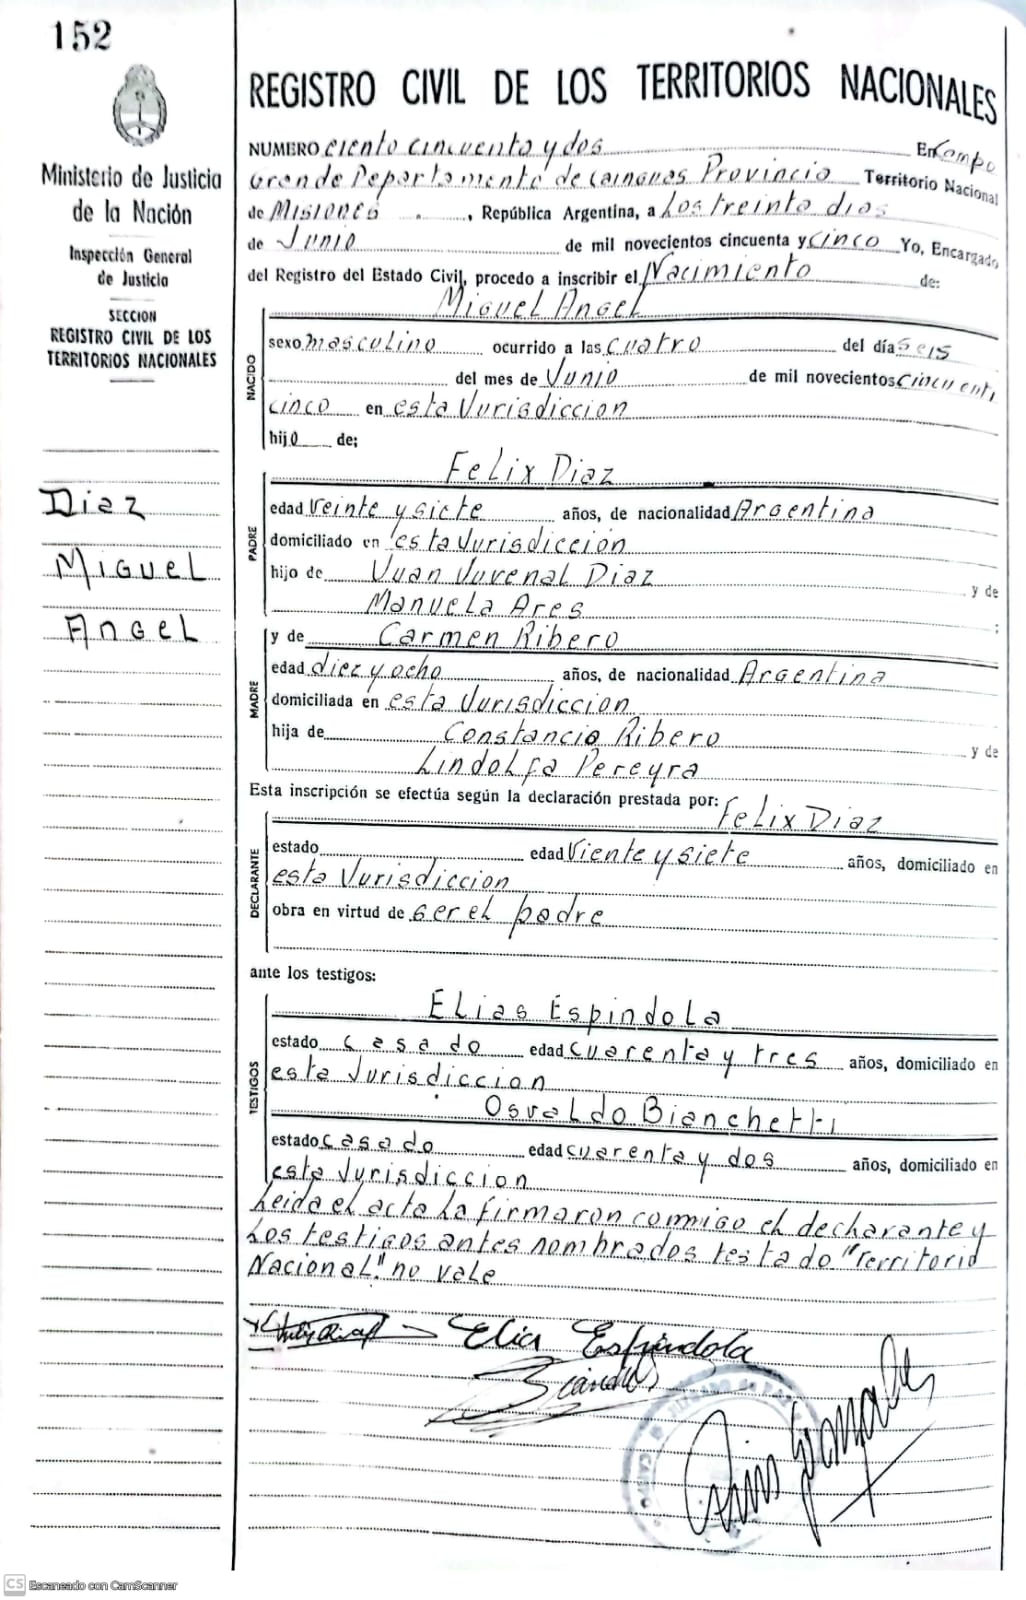 152
REGISTRO CIVIL DE LOS TERRITORIOS NACIONALES
Ministerio de Justicia
de la Nación
Inspección General
de Justicia
SECCION
REGISTRO CIVIL DE LOS
TERRITORIOS NACIONALES
Diaz
Miguel
Angel
NUMERO ciento cincuenta y dos En Campo
Grande Departamento de Cainguas Provincia Territorio Nacional
de Misiones, República Argentina, a Los treinta dias
de Junio de mil novecientos cincuenta y cinco Yo, Encargado
del Registro del Estado Civil, procedo a inscribir el Nacimiento de:
NACIDO
Miguel Angel
sexo masculino ocurrido a las cuatro del día seis
del mes de Junio de mil novecientos cincuenti
cinco en esta Jurisdiccion
hijo de;
PADRE
Felix Diaz
edad Veinte y siete años, de nacionalidad Argentina
domiciliado en esta Jurisdiccion
hijo de Juan Juvenal Diaz y de
Manuela Ares ;
MADRE
y de Carmen Ribero
edad diez y ocho años, de nacionalidad Argentina
domiciliada en esta Jurisdiccion
hija de Constancio Ribero y de
Lindolfa Pereyra
Esta inscripción se efectúa según la declaración prestada por: Felix Diaz
DECLARANTE
estado edad Viente y siete años, domiciliado en
esta Jurisdiccion
obra en virtud de ser el padre
ante los testigos:
TESTIGOS
Elias Espindola
estado casado edad cuarenta y tres años, domiciliado en
esta Jurisdiccion
Osvaldo Bianchetti
estado casado edad cuarenta y dos años, domiciliado en
esta Jurisdiccion
Leida el acta La firmaron conmigo el decharante y
Los testigos antes nombrados testado "Territorio
Nacional." no vale
Elia Espindola
Gonzalez
CS Escaneado con CamScanner